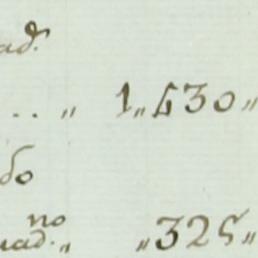 ад.
. . „ 1„630„
бо
по
ад.„ „325„